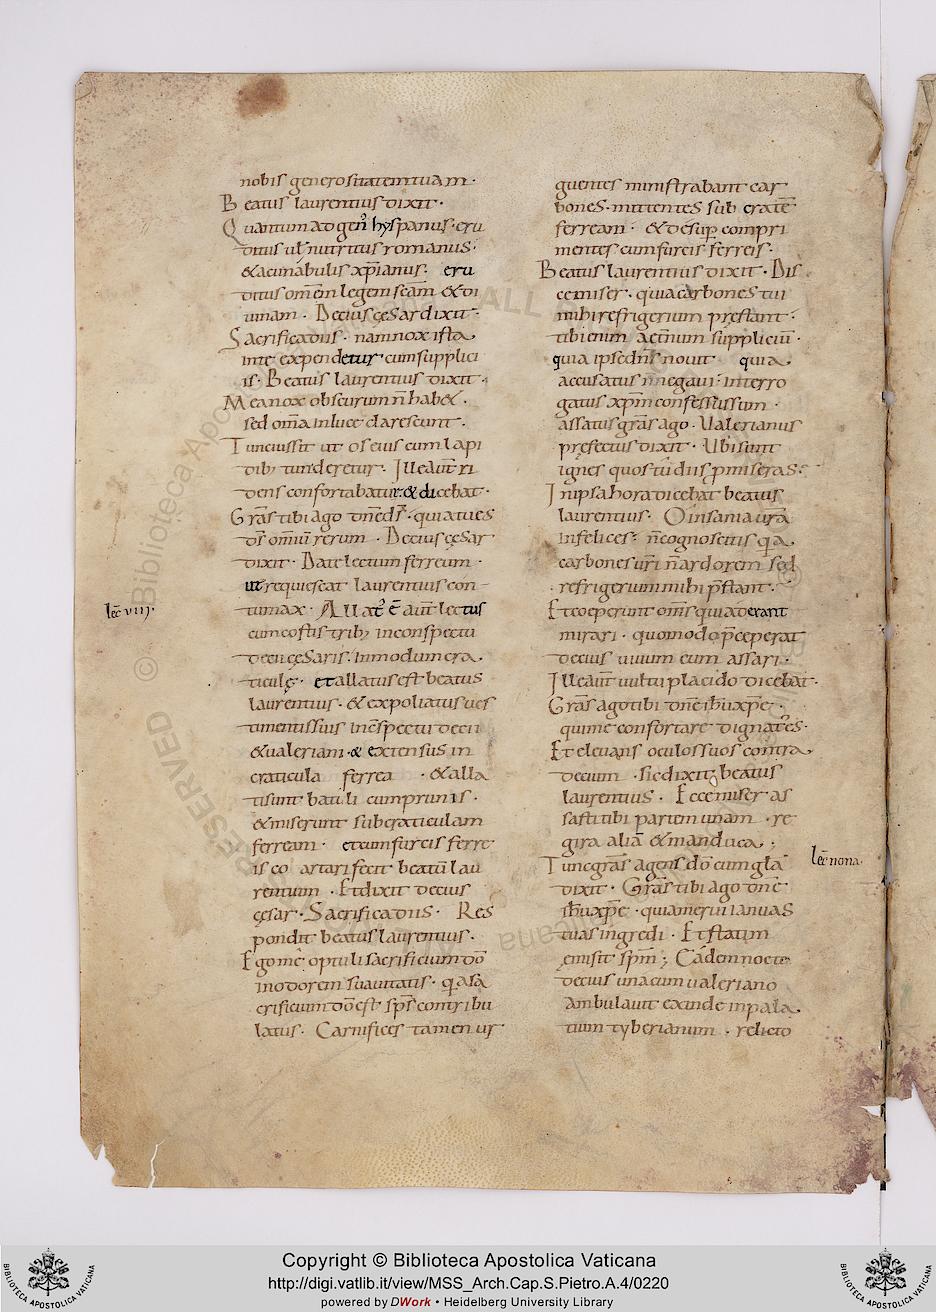 nobis generositatem tuam·
Beatus laurentius dixit·
Quantum ad gen̄ hyspanus· eru
ditus ul̄ nutritus romanus·
& acunabulis xp̄ianus· eru
ditus om̄em legem sc̄am & di
uinam· Decius cęsar dixit·
Sacrifica diis· nam nox ista
inte expendetur cum supplici
is· Beatus laurentius dixit·
Mea nox obscurum n̄ hab&·
sed om̄a inluce clarescunt·
Tunc iussit ut os eius cum lapi
dib; tunderetur· Ille aut̄ ri
dens confortabatur· & dicebat·
Gr̄as tibi ago dn̄e ds̄· qui tu es
ds̄ omniū rerum· Decius cęsar
dixit· Date lectum ferreum·
ut requiescat laurentius con
tumax· Allat' ē aut̄ lectus
lec̄ viiij·
cum costis trib; inconspectu
decii cęsaris· Inmodum cra
ticulę· et allatus est beatus
laurentius· & expoliatus ues
timentis suis incspectu decii
& ualeriani· & extensus in
craticula ferrea· & alla
ti sunt batuli cum prunis·
& miserunt sub craticulam
ferream· et cum furcis ferre
is co artari fecit beatū lau
rentium· Et dixit decius
cęsar· Sacrifica diis· Res
pondit beatus laurentius·
Ego me optuli sacrificium dō
inodorem suauitatis· q̄a sa
crificium dō est sps̄ contribu
latus· Carnifices tamen ur
guentes ministrabant car
bones· mittentes sub cratē
ferream· & desup̄ compri
mentes cum furcis ferreis·
Beatus laurentius dixit· Dis
ce miser· quia carbones tui
mihi refrigerium pręstant·
tibi enim aet̄num suppliciū·
quia ipse dn̄s nouit quia
accusatus n̄ negaui· interro
gatus xp̄m confessus sum·
assatus gr̄as ago· Ualerianus
pręfectus dixit· Ubi sunt
ignes quos tū diis p̄miseras·
In ipsa hora dicebat beatus
laurentius· O insania ur̄a
infelices· n̄ cognoscitis q̄a
carbones ur̄i n̄ ardorem sed
refrigerium mihi p̄stant·
Et coeperunt om̄s qui aderant
mirari· quomodo p̄ceperat
decius uiuum eum assari·
Ille aut̄ uultu placido dicebat·
Gr̄as ago tibi dn̄e ih̄u xp̄e·
qui me confortare dignat'es·
Et eleuans oculos suos contra
decium· sic dixit beatus
laurentius· Ecce miser as
sasti tibi partem unam· re
gira aliā & manduca;
Tunc gr̄as agens dō cum gl̄a
lec̄ nona·
dixit· Gr̄as tibi ago dn̄e
ih̄u xp̄e· quia merui ianuas
tuas ingredi· Et statim
ęmisit spm̄; Eadem nocte
decius una cum ualeriano
ambulauit exinde in pala
tium tyberianum· relicto
Copyright © Biblioteca Apostolica Vaticana
http://digi.vatlib.it/view/MSS_Arch.Cap.S.Pietro.A.4/0220
powered by DWork • Heidelberg University Library
BIBLIOTECA APOSTOLICA VATICANA
BIBLIOTECA APOSTOLICA VATICANA